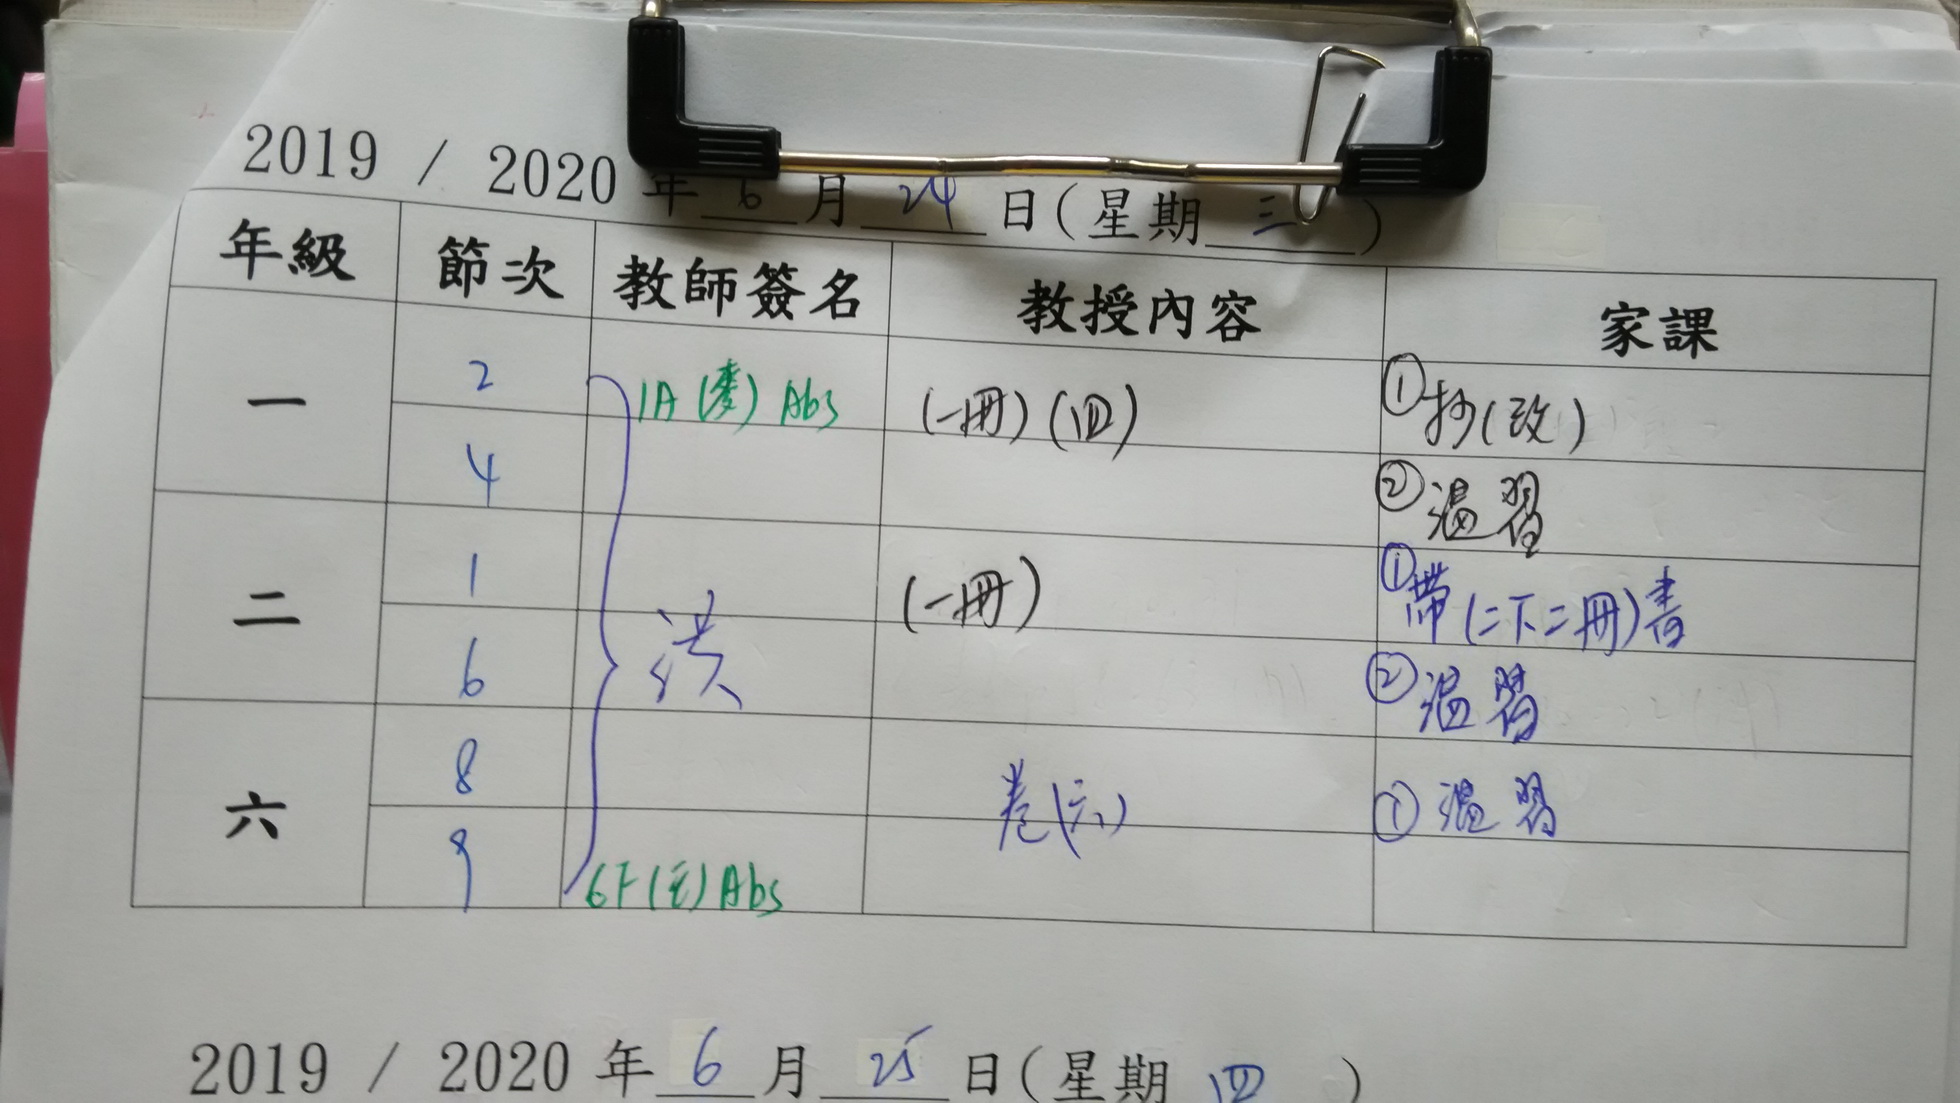 2019 / 2020 年 6 月 24 日(星期 三 )
年級 節次 教師簽名 教授內容 家課
一 2 1A ( ) Abs (一冊) (四) ①抄(改)
4 ②溫習
二 1 洪 (一冊) ①帶(二下二冊)書
6 ②溫習
六 8 卷(六) ①溫習
9 6F ( ) Abs
2019 / 2020 年 6 月 25 日(星期 四 )